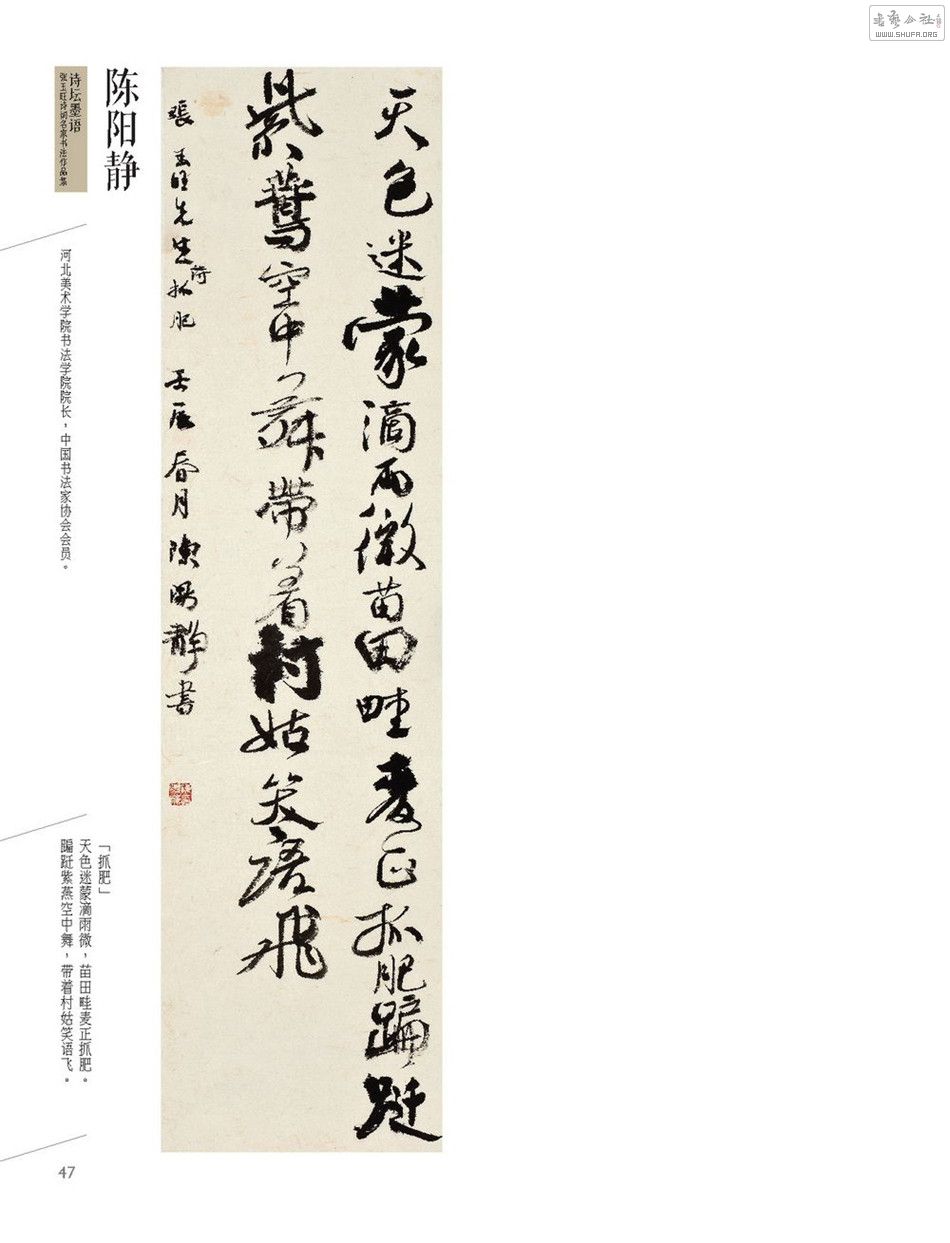 书艺公社
WWW.SHUFA.ORG
天色迷蒙滴雨微苗田畦麦正抓肥蹁跹
紫鷰空中舞带着村姑笑语飛
張玉旺先生诗抓肥 壬辰春月陳陽静書
陈阳静
诗坛墨语
张玉旺诗词名家书法作品集
河北美术学院书法学院院长，中国书法家协会会员。
「抓肥」
天色迷蒙滴雨微，苗田畦麦正抓肥。
蹁跹紫燕空中舞，带着村姑笑语飞。
47